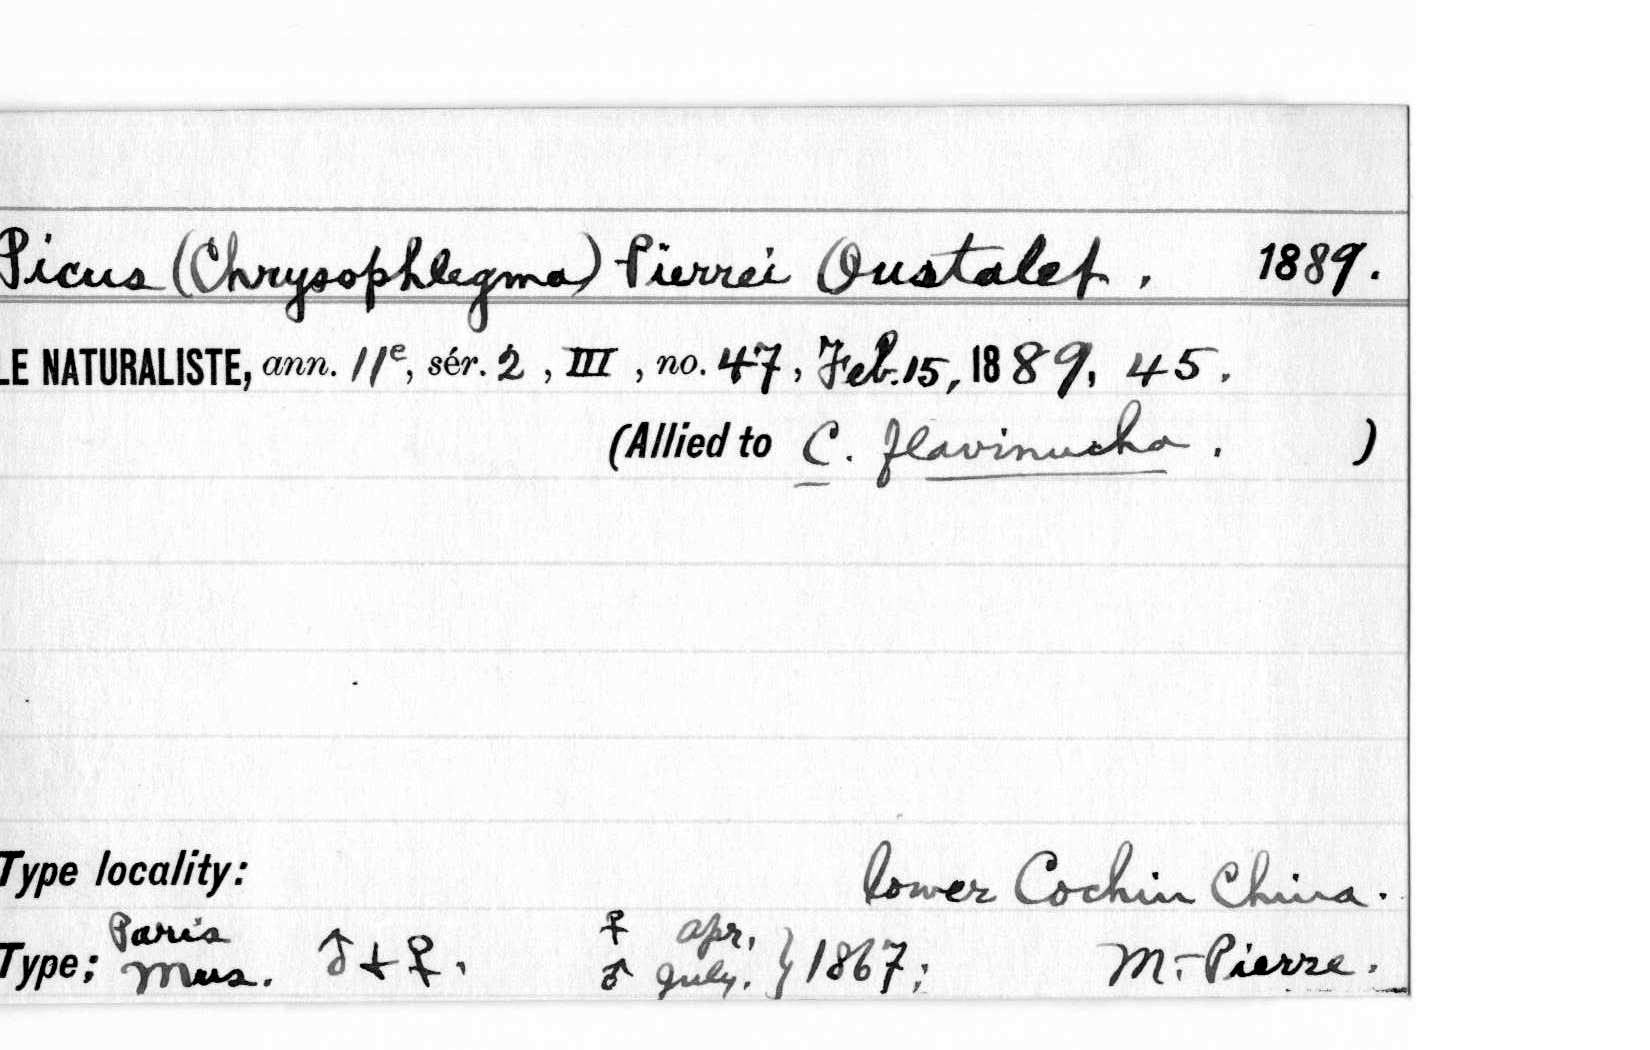 Picus (Chrysophlegma) Pierrei Oustalet. 1889.
LE NATURALISTE, ann. 11e, sér. 2, III, no. 47, Feb. 15, 1889, 45.
(Allied to C. flavinucha. )
Type locality: lower Cochin China.
Type; Paris Mus. ♂ + ♀. ♀ apr. ♂ July. } 1867; M. Pierre.